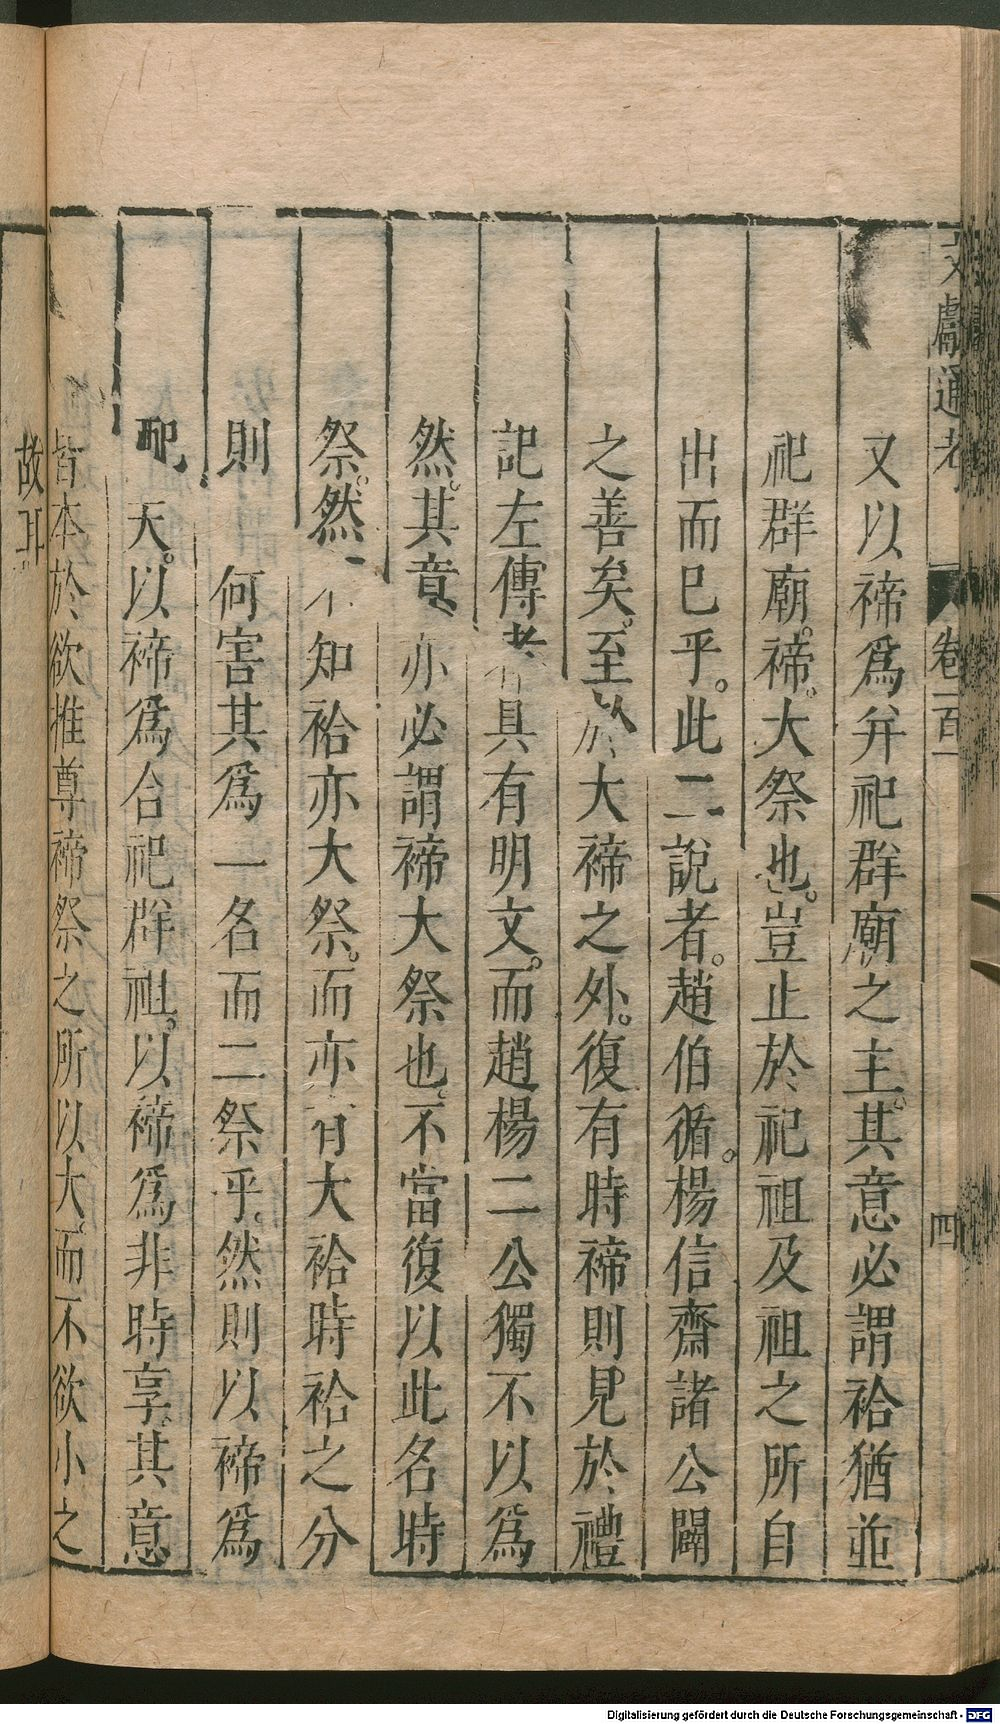 文獻通考 卷一百 四
又以禘爲并祀群廟之主。其意必謂祫猶並
祀群廟。禘。大祭也。豈止於祀祖及祖之所自
出而已乎。此二說者。趙伯循。楊信齋諸公闢
之善矣。至於大禘之外。復有時禘則見於禮
記左傳者具有明文。而趙楊二公獨不以爲
然。其意亦必謂禘大祭也。不當復以此名時
祭。然不知祫亦大祭。而亦有大祫時祫之分
則何害其爲一名而二祭乎。然則以禘爲
祀天。以禘爲合祀群祖。以禘爲非時享。其意
皆本於欲推尊禘祭之所以大。而不欲小之
故耳
Digitalisierung gefördert durch die Deutsche Forschungsgemeinschaft - DFG